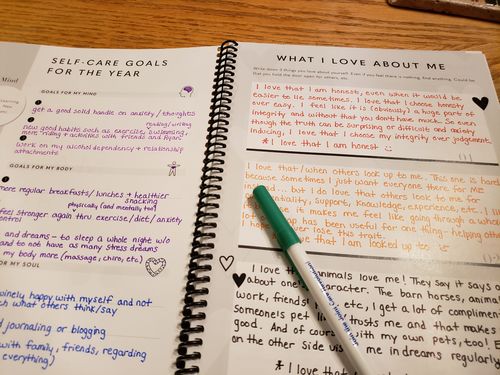 SELF-CARE GOALS
FOR THE YEAR
Mind
GOALS FOR MY MIND
get a good solid handle on anxiety/thoughts
reading/writing
new good habits such as exercise, swimming,
more riding + activities with friends and Ryan
Work on my alcohol dependency + relationship
attachments
GOALS FOR MY BODY
more regular breakfasts/lunches + healthier
snacking
physically (and mentally too)
feel stronger again thru exercise/diet/anxiety
control
and dreams - to sleep a whole night w/o
and to not have as many stress dreams
my body more (massage, chiro, etc)
FOR MY SOUL
happy with myself and not
what others think/say
journaling or blogging
with family, friends, regarding
everything)
WHAT I LOVE ABOUT ME
Write down 3 things you love about yourself. Even if you feel there is nothing, find anything. Could be
that you hold the door open for others, etc.
I love that I am honest, even when it would be
easier to lie sometimes. I love that I choose honesty
over easy. I feel like it is (obviously) a huge part of
integrity and without that you don't have much. So even
though the truth can be surprising or difficult and anxiety
inducing, I love that I choose my integrity over judgement.
* I love that I am honest
I love that/when others look up to me. This one is hard
because sometimes I just want everyone there for ME
instead... but I do love that others look to me for
support, knowledge, experience, etc. I
it makes me feel like going through a whole
lot has been useful for one thing - helping others
hope I never lose this trait.
that I am looked up to
I love that animals love me! They say it says a
about one's character. The barn horses, animals
work, friends' etc, I get a lot of compliments
someone's pet trusts me and that makes
good. And of course with my own pets, too! E
on the other side me in dreams regularly
* I love that